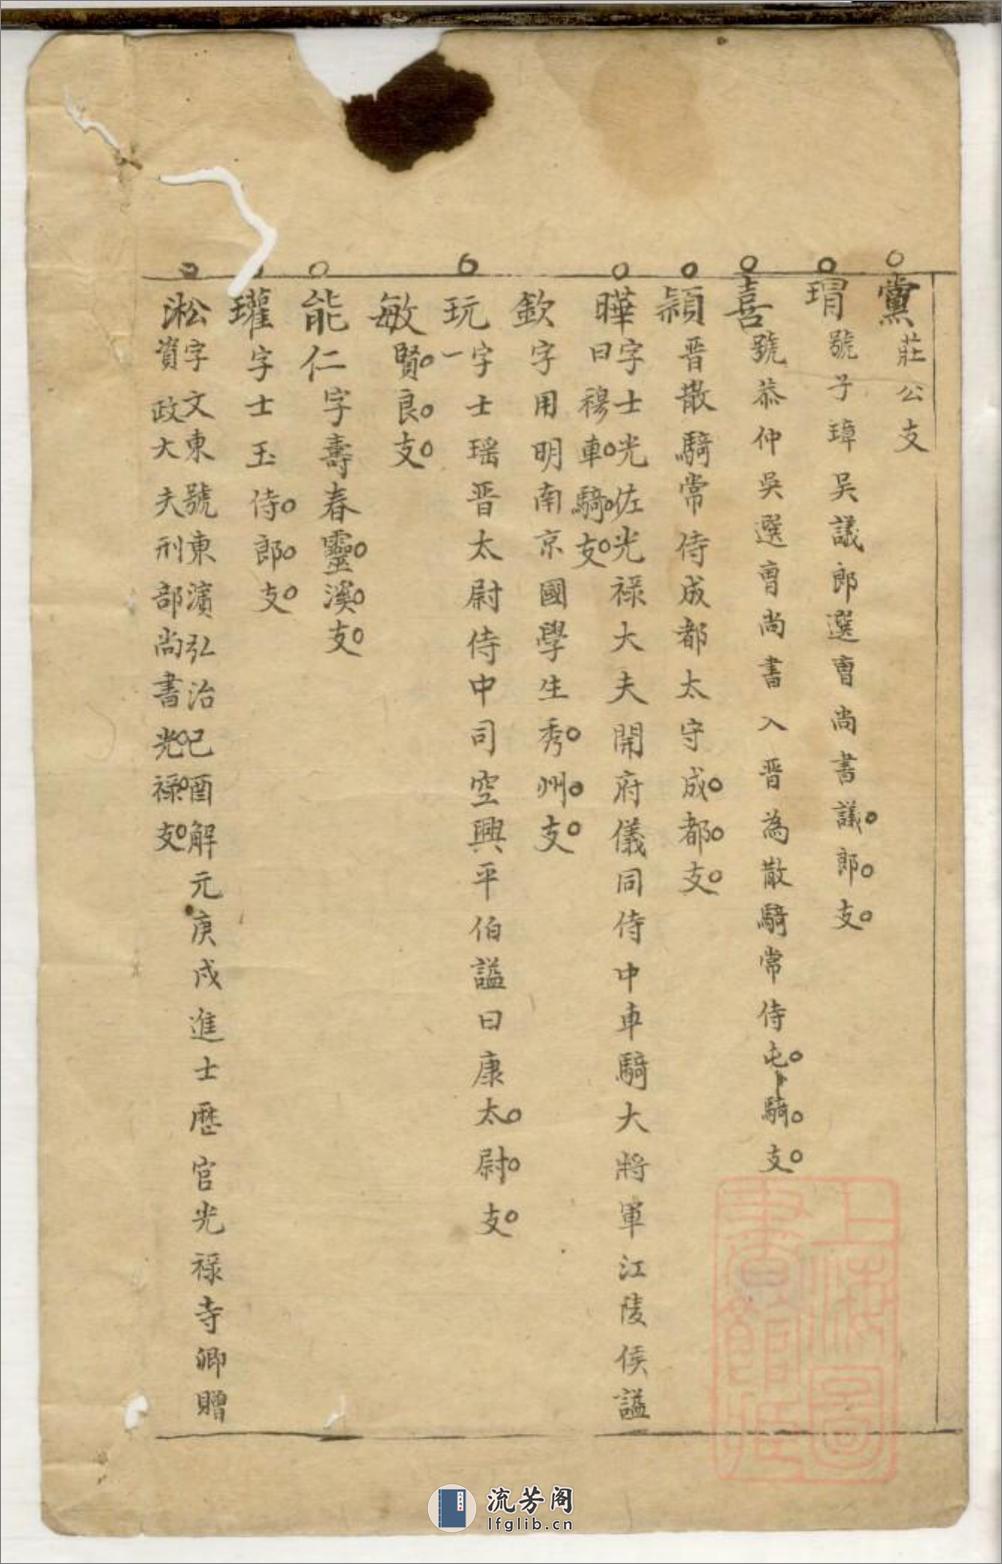 黨 莊公支
瑁 號子璋吳議郎選曹尚書議郎支
喜 號恭仲吳選曹尚書入晋為散騎常侍屯騎支
頴 晋散騎常侍成都太守成都支
曄 字士光佐光祿大夫開府儀同侍中車騎大將軍江陵侯謚
曰穆車騎支
欽 字用明南京國學生秀州支
玩 字士瑶晋太尉侍中司空興平伯謚曰康太尉支
一
敏 賢良支
能仁 字壽春靈溪支
瓘 字士玉侍郎支
淞 字文東號東濱弘治己酉解元庚戌進士歷官光祿寺卿贈
資政大夫刑部尚書光祿支
上海圖書館藏
流芳阁
lfglib.cn